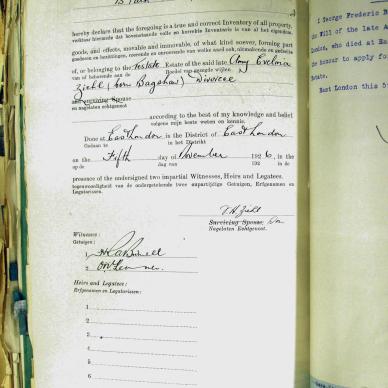 hereby declare that the foregoing is a true and correct Inventory of all property,
verklaar hiermede dat bovenstaande volle en korrekte Inventaris is van al het eigendom,
goods, and effects, movable and immovable, of what kind soever, forming part
goederen en bezittingen, roerende en onroerende van welke aard ook,
of, or belonging to the testate Estate of the said Amy Evelina
van of behorende aan de Boedel van gezegde wijlen
Ziehl (born Bagshaw) Divorcee
and surviving Spouse
en nagelaten Echtgenoot
according to the best of my knowledge and belief
volgens mijn beste weten en kennis.
Done at East London in the District of East London
Gedaan te in het Distrikt
on the Fifth day of November 1926, in the
op de dag van 192 , in de
presence of the undersigned two impartial Witnesses, Heirs and Legatees.
tegenwoordigheid van de ondergetekende twee onpartijdige Getuigen, Erfgenamen en
Legatarissen.
Ziehl
Surviving Spouse,
Nagelaten Echtgenoot.
Witnesses:
Getuigen:
1
2
Heirs and Legatees:
Erfgenamen en Legatarissen:
1
2
3
4
5
6
I George Frederic B
the Will of the late A
London, who died at Ea
the honour to apply fo
Estate.
East London this 5